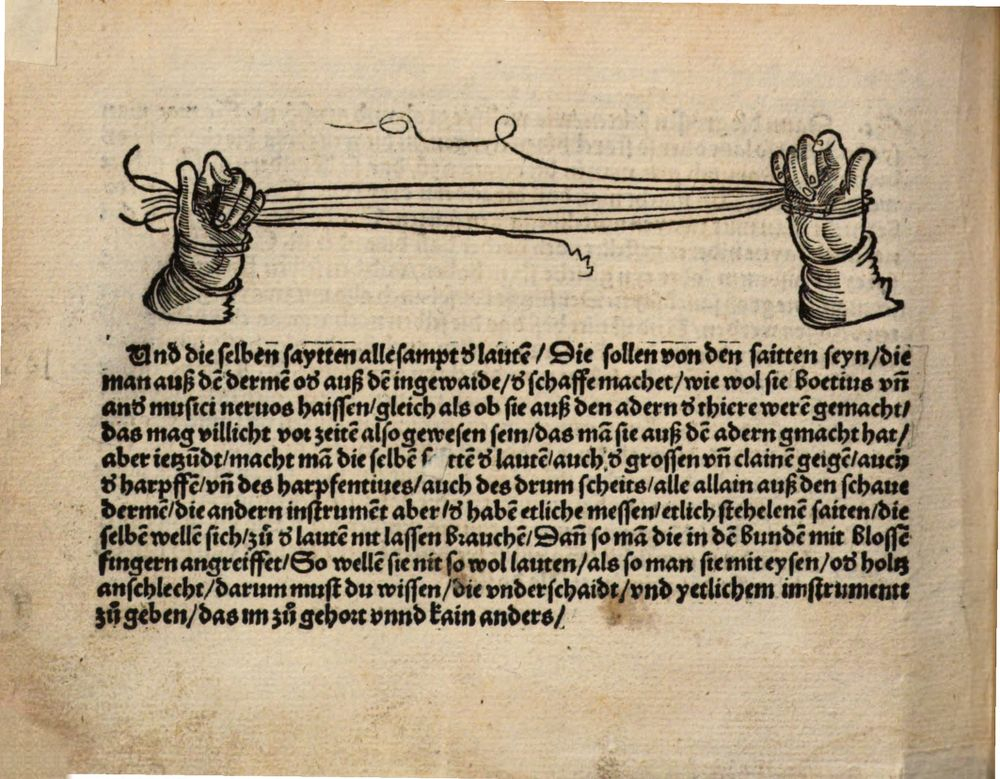 Und die selben̄ saytten̄ alle sampt d̕ lautē / Die sollen von den saitten seyn/die
man auß dē dermē od̕ auß dē ingewaide/d̕ schaffe machet/wie wol sie Boetius vn̄
and̕ musici neruos haissen/gleich als ob sie auß den adern d̕ thiere werē gemacht/
das mag villicht vor zeitē also gewesen sein/das mā sie auß dē adern gmacht hat/
aber ietzūdt/macht mā die selbē s ttē d̕ lautē/auch d̕ grossen vn̄ clainē geigē/auch
d̕ harpffē/vn̄ des harpfentiues/auch des drum scheits/alle allain auß den schaue
dermē/die andern instrumēt aber/d̕ habē etliche messen/etlich stehelenē saiten/die
selbē wellē sich/zū d̕ lautē nit lassen brauchē/Dan̄ so mā die in dē bundē mit blossē
fingern angreiffet/So wellē sie nit so wol lauten/als so man sie mit eysen/od̕ holtz
anschlecht/darum must du wissen/die vnderschaidt/vnd yetlichem instrument
zū geben/das im zū gehort vnnd kain anders/